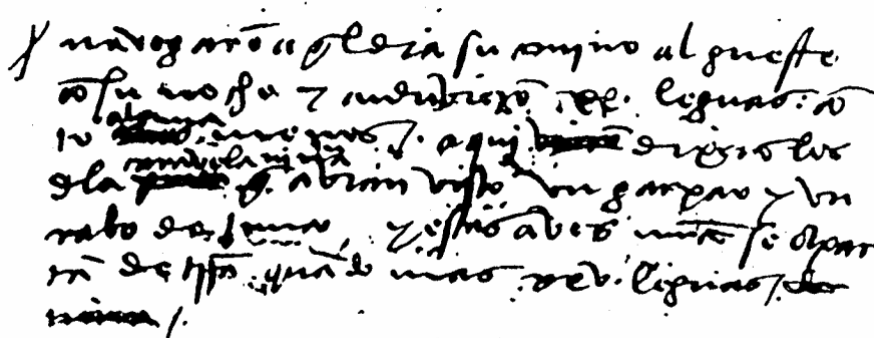 navegarō aql dia su camino al gueste
cō su noche y anduvierō .xx. leguas . cō
to alguna menos / . aqui dixerō los
dela caravela niña q̄ avian visto un garxao y un
rabo de junco / y estas aves nūca se apar
tā de trr̄a quādo mas .xxv. leguas /